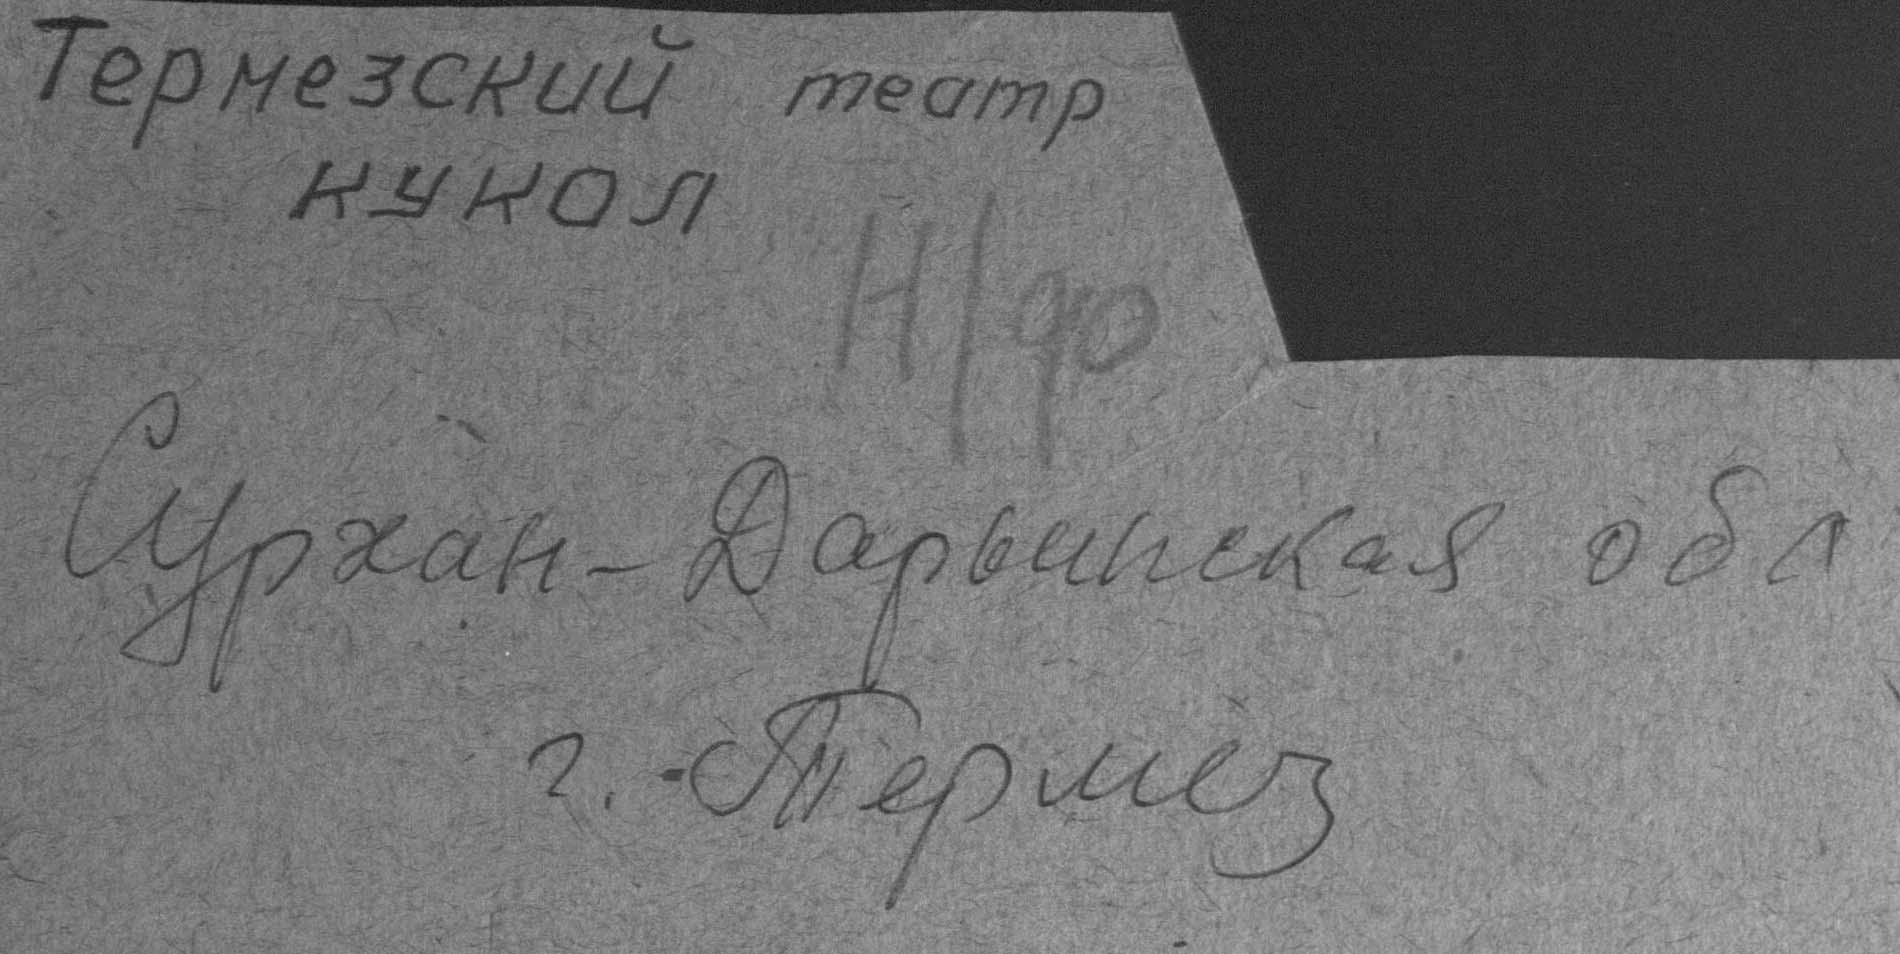 Термезский театр
кукол
Н/фо
Сурхан-Дарьинская обл
г. Термез